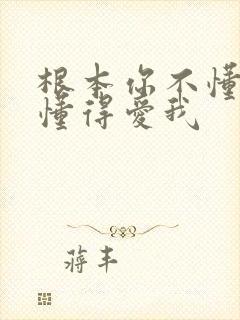 根本你不懂
懂得愛我
蔣丰